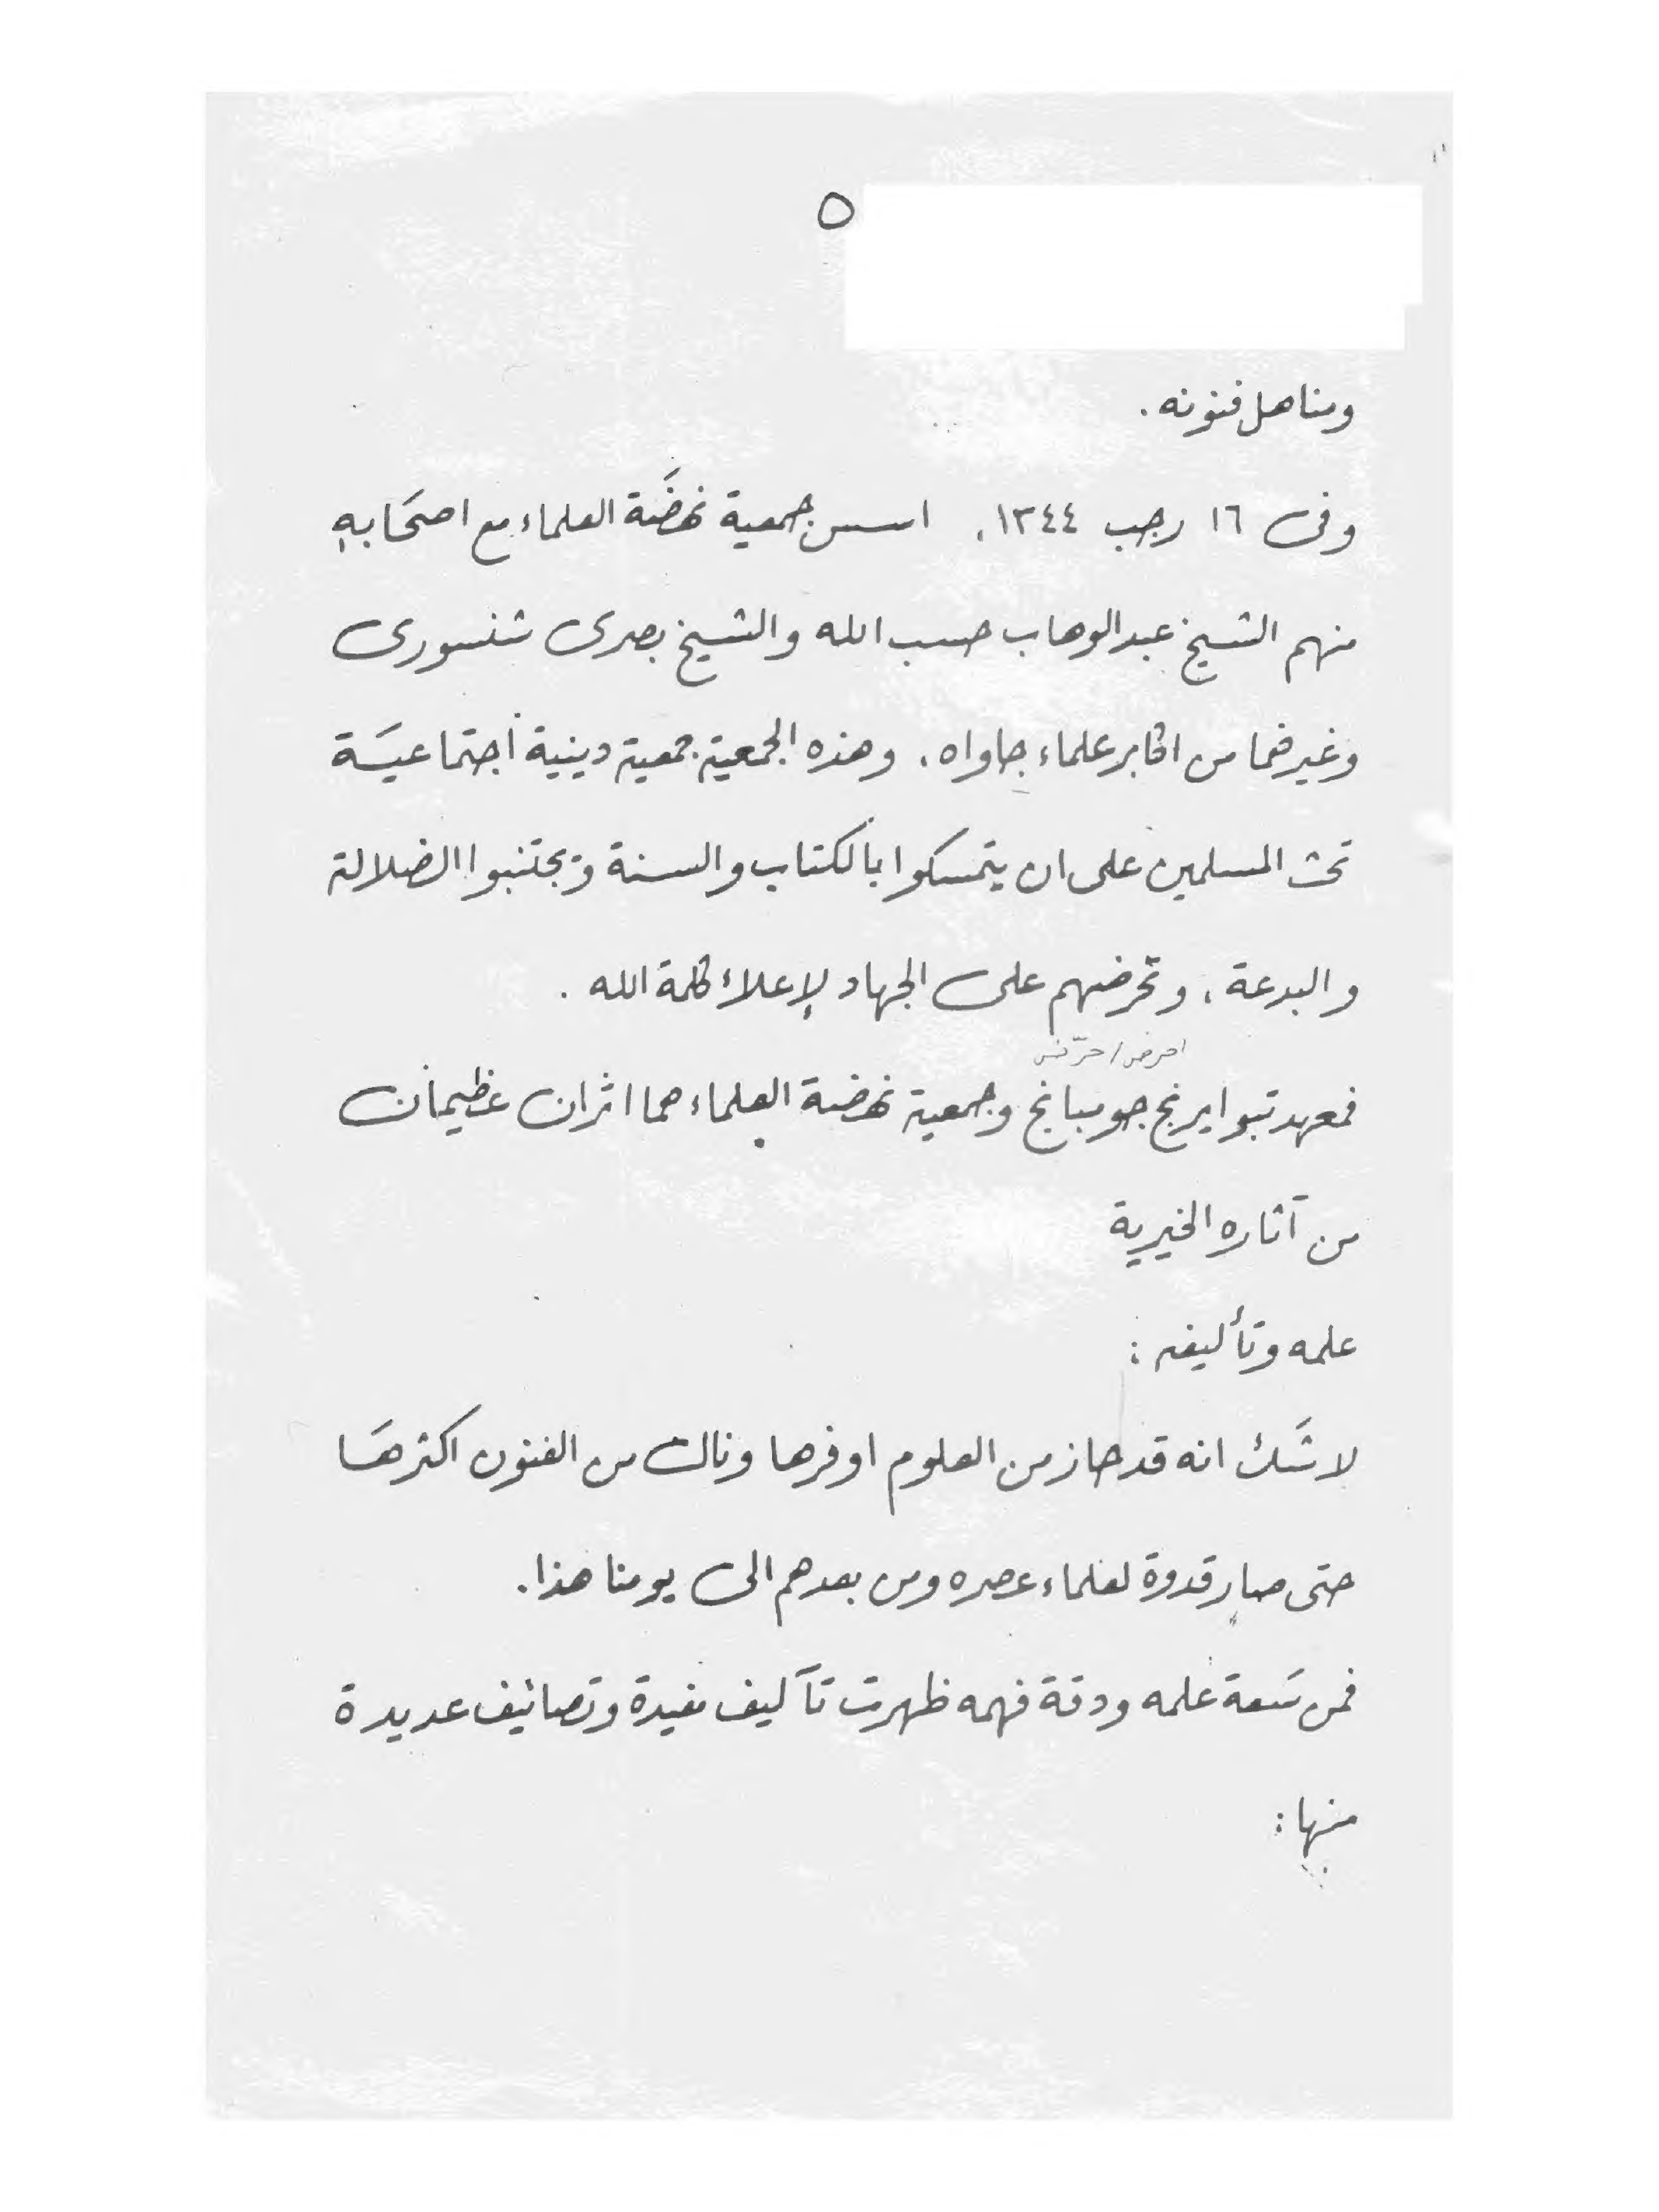 ٥
ومناهل فنونه.
وفى ١٦ رجب ١٣٤٤، اسس جمعية نهضَة العلماء مع اصحَابهِ
منهم الشيخ عبدالوهاب حسب الله والشيخ بصرى شنسورى
وغيرهما من اكابر علماء جاواه، وهذه الجمعية جمعية دينية اجتماعيَة
تحث المسلمين على ان يتمسكوا بالكتاب والسنة ويجتنبوا الضلالة
والبدعة، وتحرضهم على الجهاد لإعلاء كلمة الله.
فمعهد تبوايرنج جومبانج وجمعية نهضة العلماء هما اثران عظيمان
من آثاره الخيرية
علمه وتأليفه:
لا شَك انه قد حاز من العلوم اوفرها ونال من الفنون اكثرهَا
حتى صار قدوة لعلماء عصره ومن بعدهم الى يومنا هذا.
فمن سَعة علمه ودقة فهمه ظهرت تآليف مفيدة وتصانيف عديدة
منها: